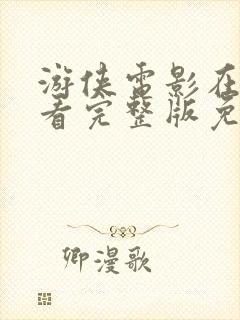 游侠电影在
看完整版免
卿漫歌